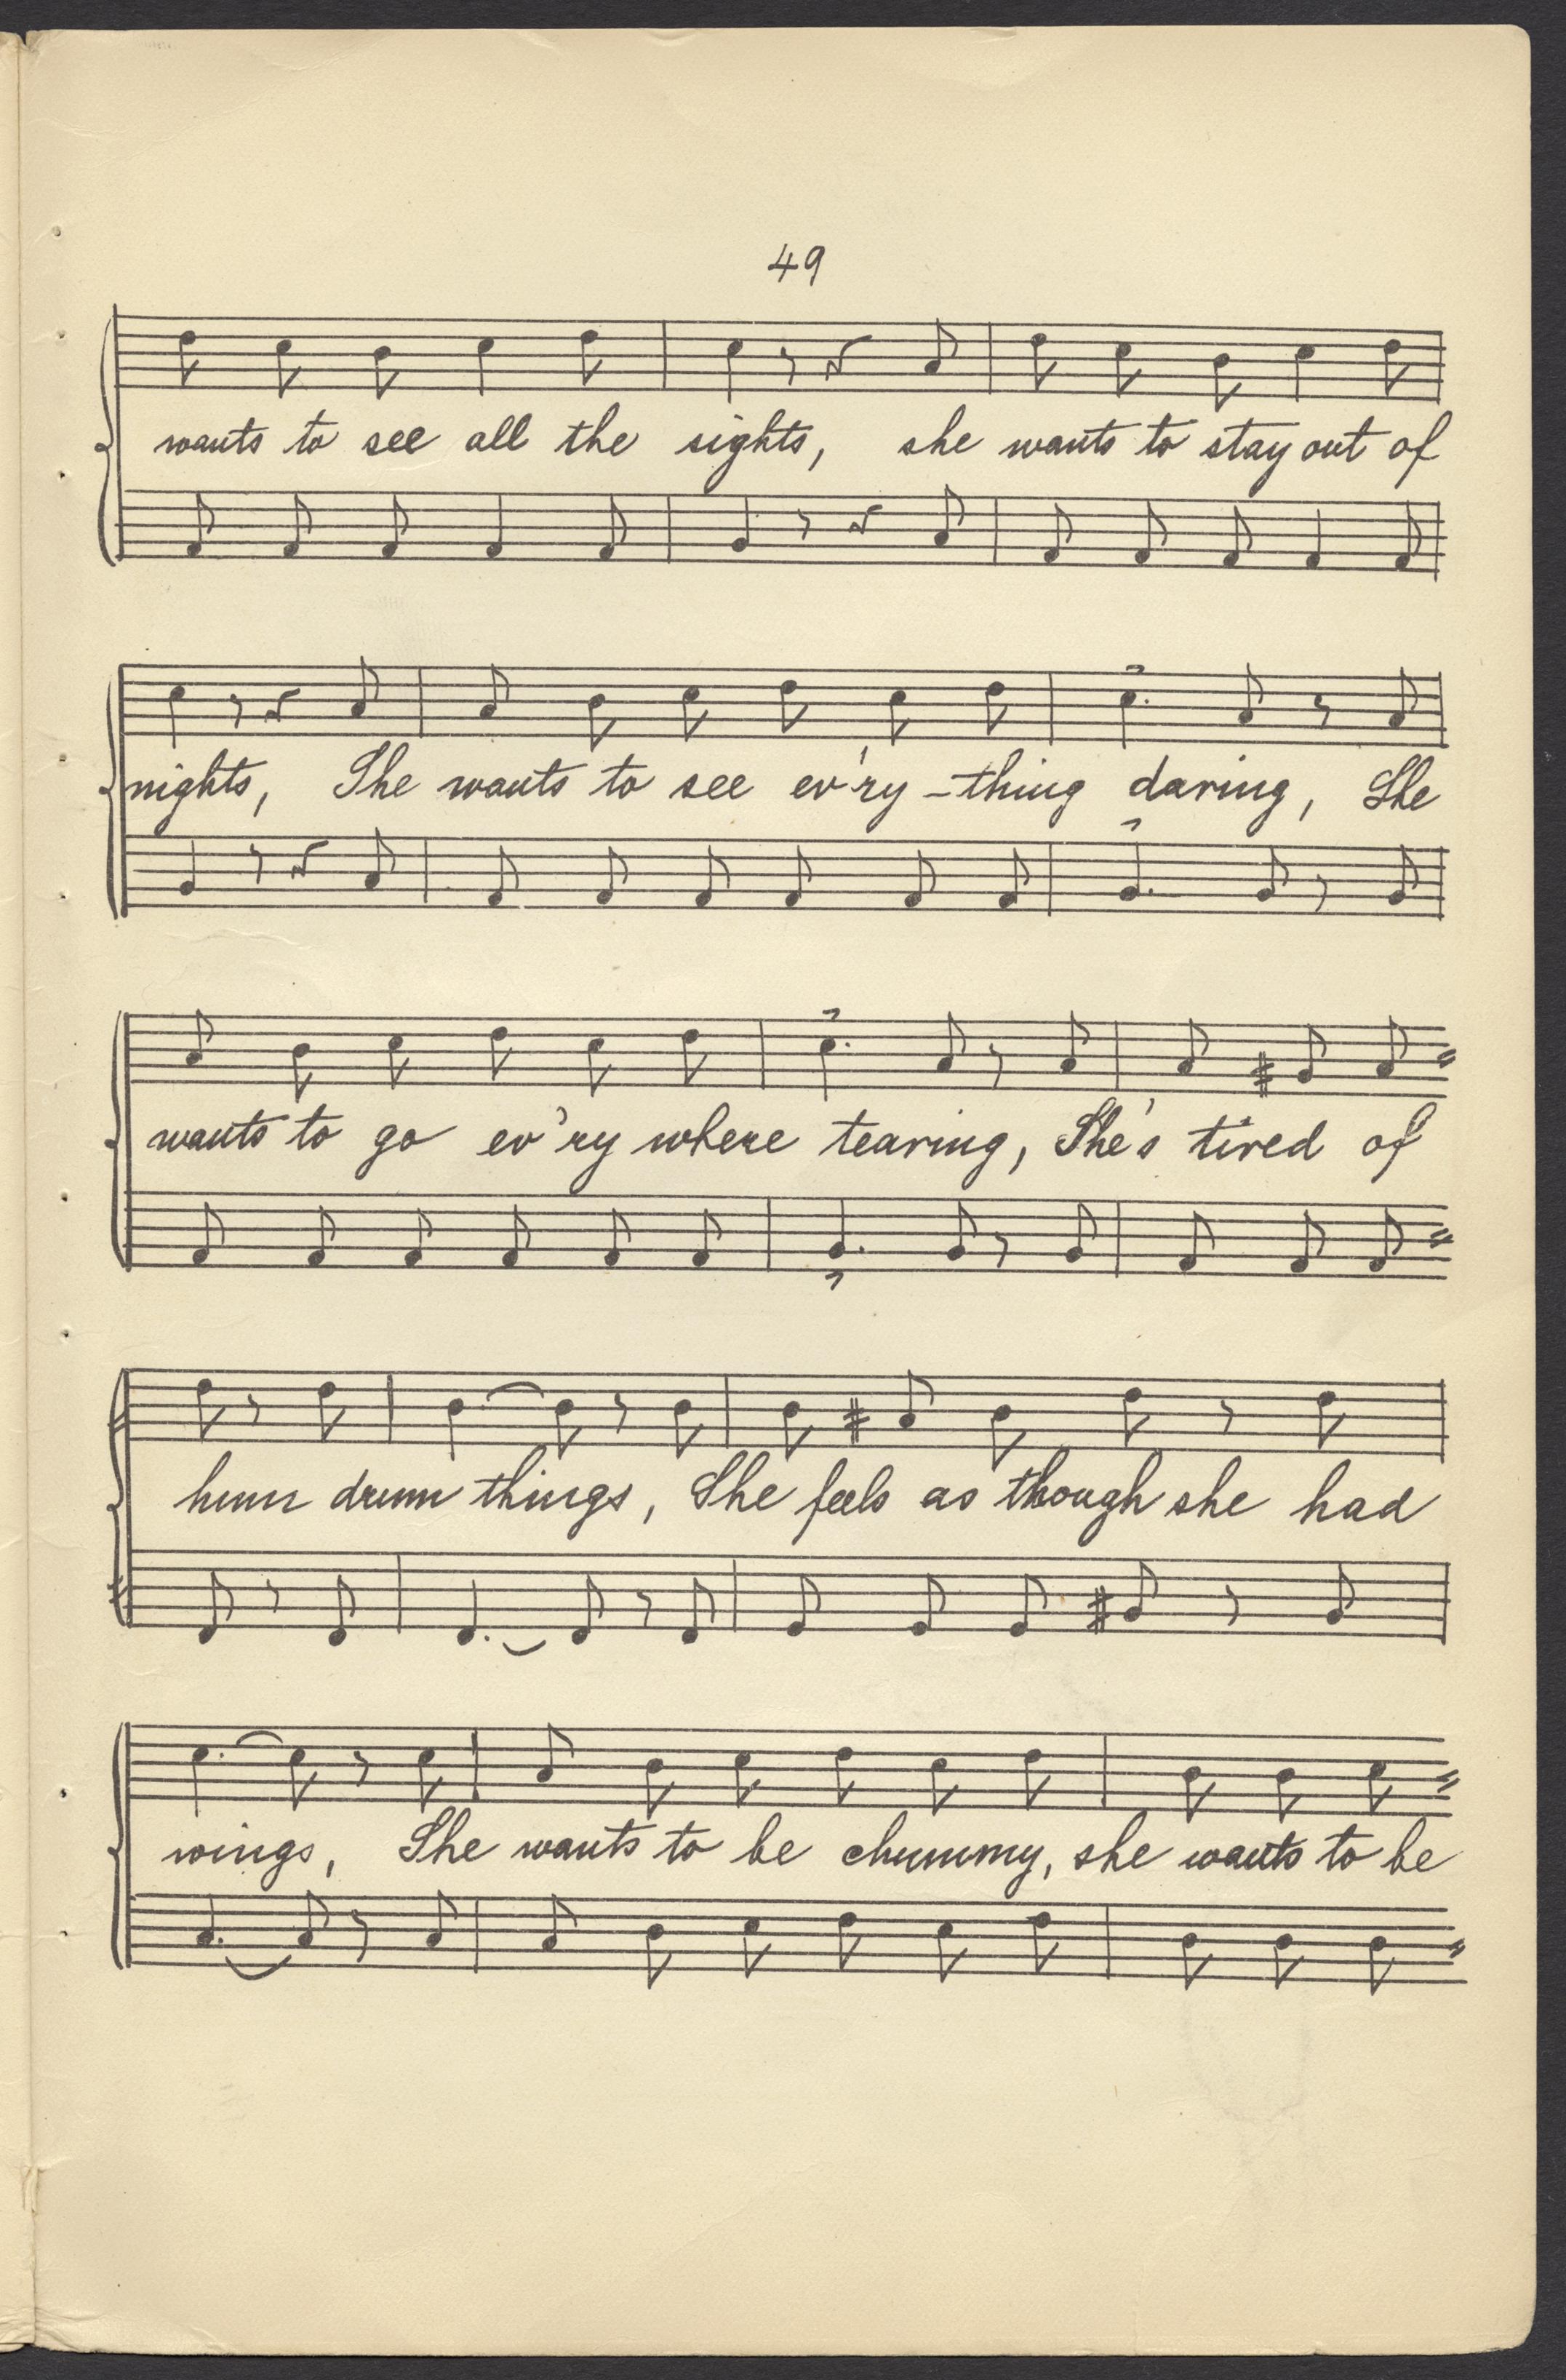 49
wants to see all the sights, she wants to stay out of
nights, She wants to see ev'ry-thing daring, She
wants to go ev'ry where tearing, She's tired of
hum drum things, She feels as though she had
wings, She wants to be chummy, she wants to be